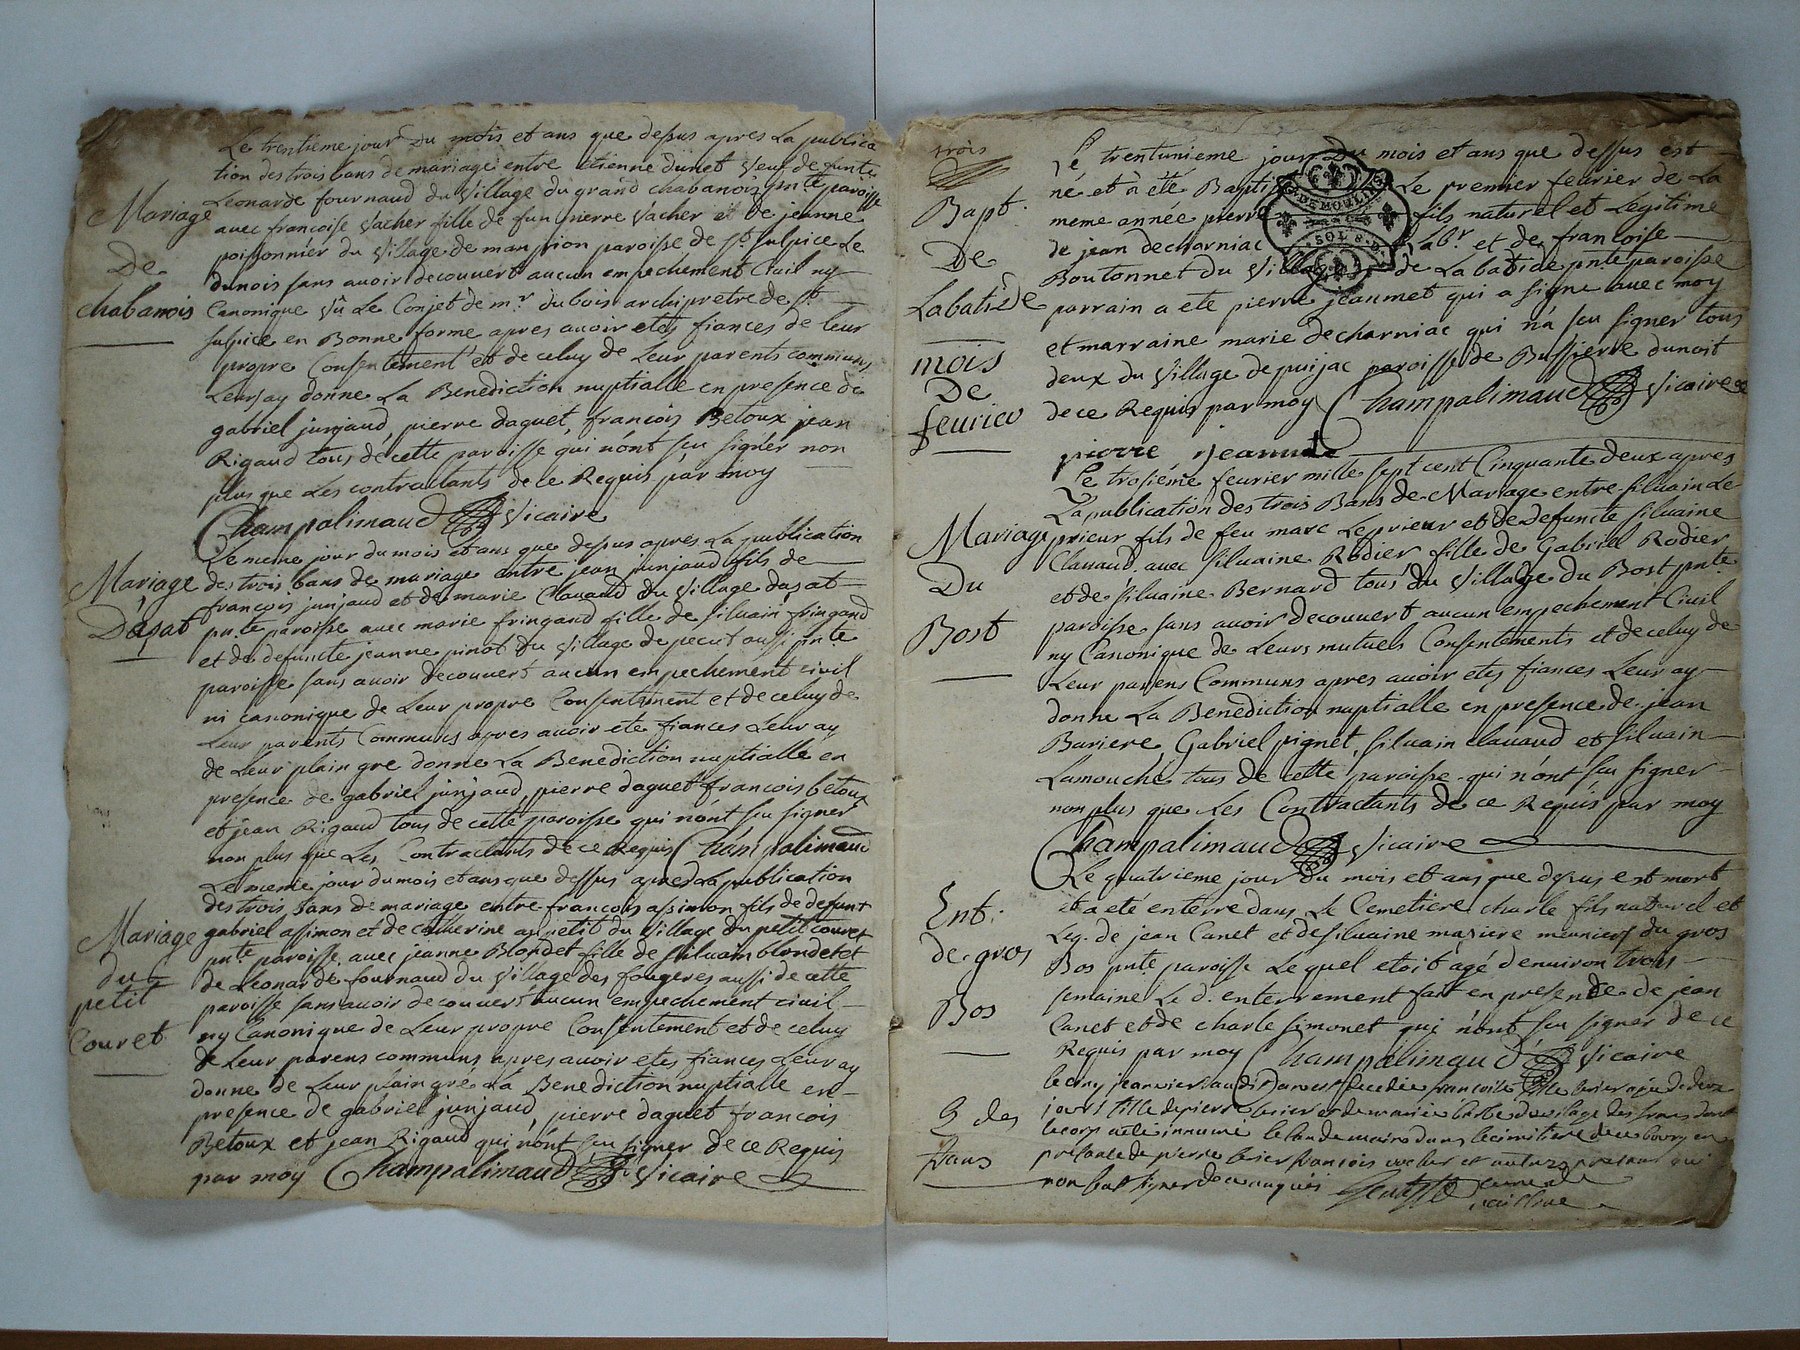 Le trentième jour du mois et ans que dessus apres La publica
tion des trois bans de mariage entre etienne dunet veuf de funte
Leonarde fournaud du village du grand chabanois pnte paroisse
Mariage
avec francoise vacher fille de fun pierre vacher et de jeanne
poissonnier du village de paroisse de St sulpice Le
De
dunois sans avoir decouvert aucun empechement Civil ny
chabanois
Canonique vû Le Conjet de mr dubois archipretre de St
sulpice en Bonne forme apres avoir etés fiances de leur
propre Consentement et de celuy de Leur parents communs
Leur ay donne La Benediction nuptialle en presence de
gabriel junjaud, pierre daguet, francois Betoux jean
Rigaud tous de cette paroisse qui n'ont sçu signer non
plus que Les contractants de ce Requis par moy
Champalimaud vicaire
Le meme jour du mois et ans que dessus apres La publication
Mariage
des trois bans de mariage entre jean junjaud fils de
francois junjaud et de marie Clavaud du village dasat
D'asat
pnte paroisse avec marie fringand fille de silvain fringand
et de defuncte jeanne pinot du village de pecut aussi pnte
paroisse sans avoir decouvert aucun empechement civil
ni canonique de Leur propre Consentement et de celuy de
Leur parents Communs apres avoir ete fiances Leur ay
de Leur plain gre donne La Benediction nuptialle en
presence de gabriel junjaud, pierre daguet francois betoux
et jean Rigaud tous de cette paroisse qui n'ont sçu signer
non plus que Les Contractants de ce Requis Champalimaud
Le meme jour du mois et ans que dessus apres La publication
des trois bans de mariage entre francois asimon fils de defunt
Mariage
gabriel asimon et de catherine appetit du village du petit couret
du
pnte paroisse avec jeanne Blondet fille de silvain blondet et
petit
de Leonarde fournaud du village des fougeres aussi de cette
paroisse sans avoir decouvert aucun empechement civil
Couret
ny Canonique de Leur propre Consentement et de celuy
de Leur parens communs apres avoir etés fiances Leur ay
donne de Leur plain gré La Benediction nuptialle en
presence de gabriel junjaud, pierre daguet francois
Betoux et jean Rigaud qui n'ont sçu signer de ce Requis
par moy Champalimaud vicaire
trois
Le trentunième jour Du mois et ans que dessus est
né et à été Bapti Le premier fevrier de La
DE MOULINS
Bapt.
meme année pierre fils naturel et Legitime
SOL 8 D
De
de jean decharniac labr. et de francoise
Boutonnet du village de La batide pnte paroisse
Labatide
parrain a ete pierre jeanmet qui a signe avec moy
et marraine marie decharniac qui n'a sçu signer tous
mois
deux du village de puijac paroisse de Bussierre dunoit
De
fevrier
de ce Requis par moy Champalimaud vicaire
pierre
Le trosième fevrier mille sept cent Cinquante deux apres
La publication des trois Bans de Mariage entre silvain Le
Mariage
prieur fils de feu marc Leprieur et de defuncte silvaine
Clavaud avec silvaine Rodier fille de Gabriel Rodier
Du
et de silvaine Bernard tous du village du Bost pnte
Bost
paroisse sans avoir decouvert aucun empechement Civil
ny Canonique de Leurs mutuels Consentements et de celuy de
Leur parens Communs apres avoir etés fiances Leur ay
donne La Benediction nuptialle en presence de jean
Bariere Gabriel pignet, silvain clavaud et silvain
Lamouche tous de cette paroisse qui n'ont sçu signer
non plus que Les Contractants de ce Requis par moy
Champalimaud vicaire
Le quatrieme jour du mois et ans que dessus est mort
Ent.
et a eté enterre dans Le Cemetiere charle fils naturel et
Leg. de jean Canet et de silvaine maziere meuniers du gros
de gros
Bos pnte paroisse Lequel etoit agé d'environ trois
Bos
semaine Le d. enterrement fait en presence de jean
Canet et de charle simonet qui n'ont sçu signer de ce
Requis par moy Champalimaud vicaire
le cinq janvier est decedée francoise agée de deux
2 des
jours fille de pierre et de marie du vilage des dont
le corps a été innumé le lendemain dans le cimitiere de ce bourg en
presance de pierre francois vacher et autres qui
non sut signer de ce requis